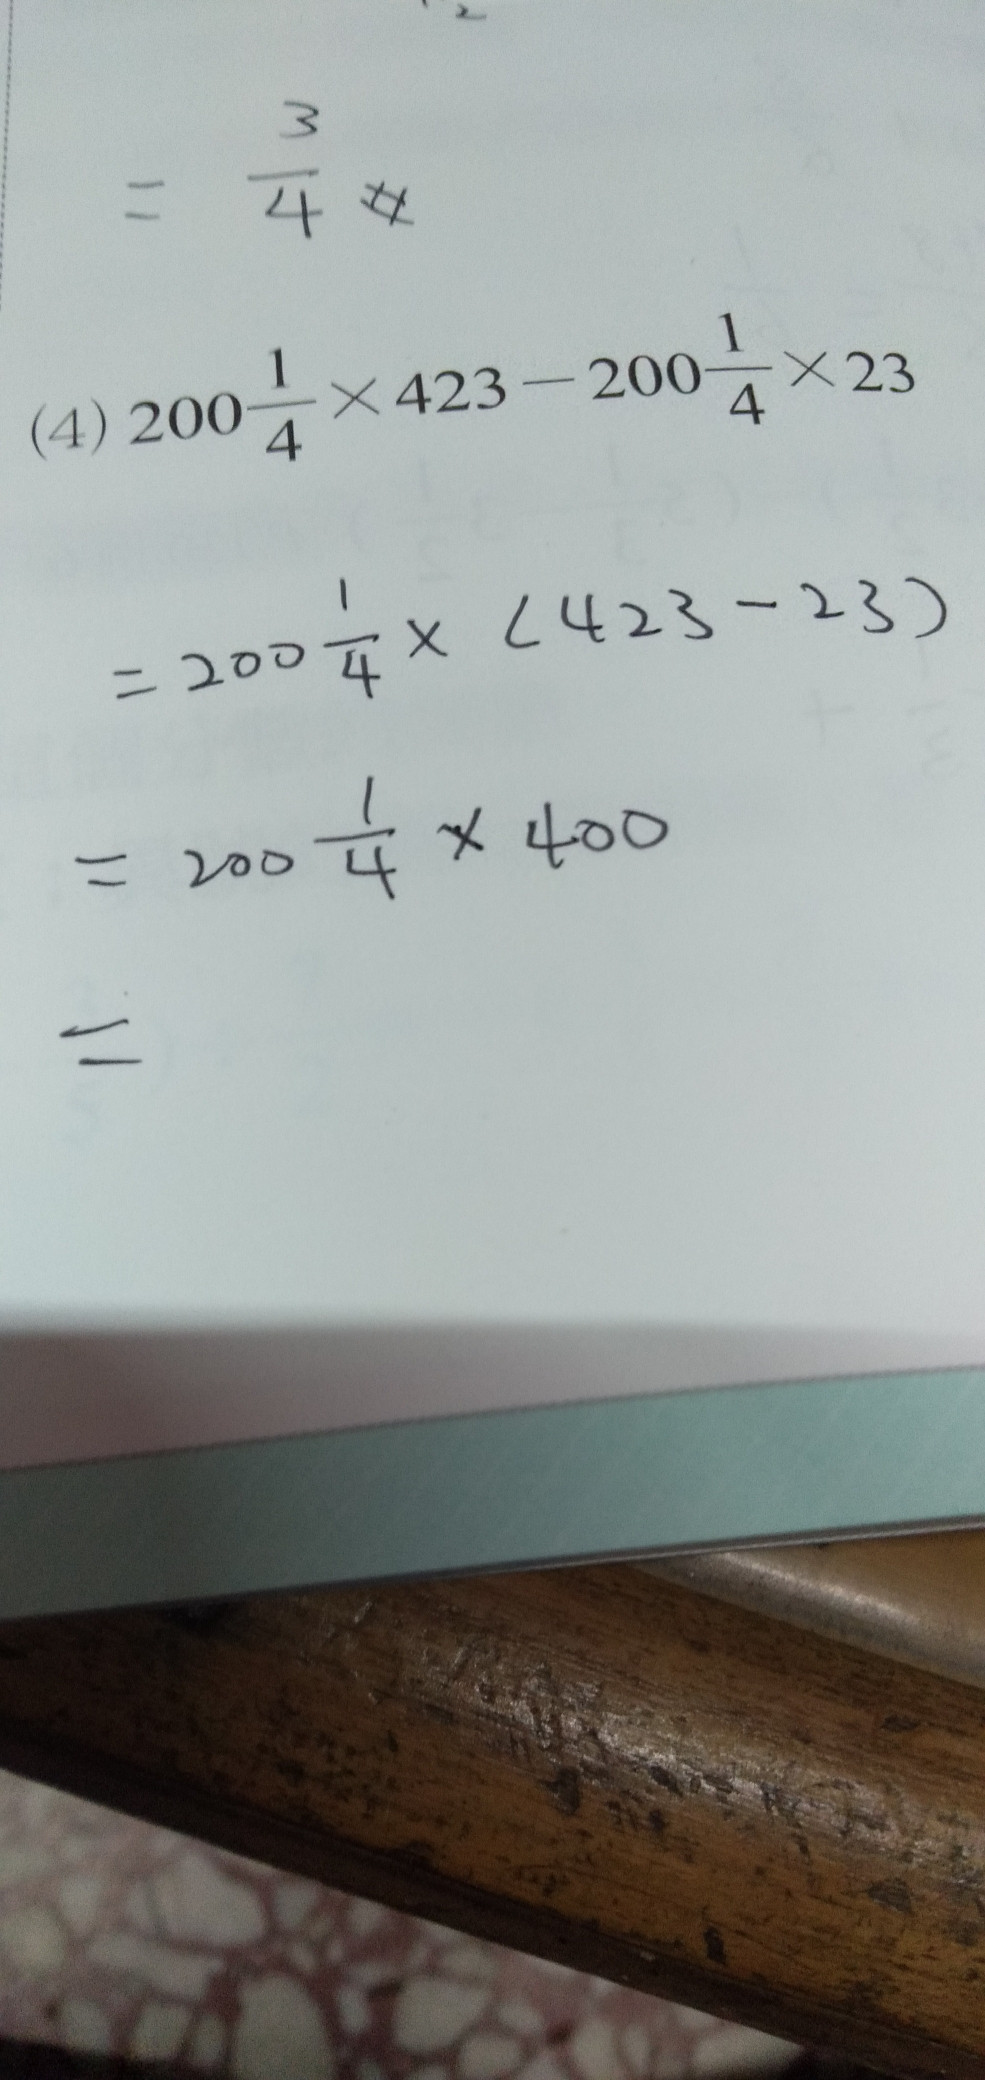 = 3/4 #
(4) 200 1/4 × 423 − 200 1/4 × 23
= 200 1/4 × (423 - 23)
= 200 1/4 × 400
=